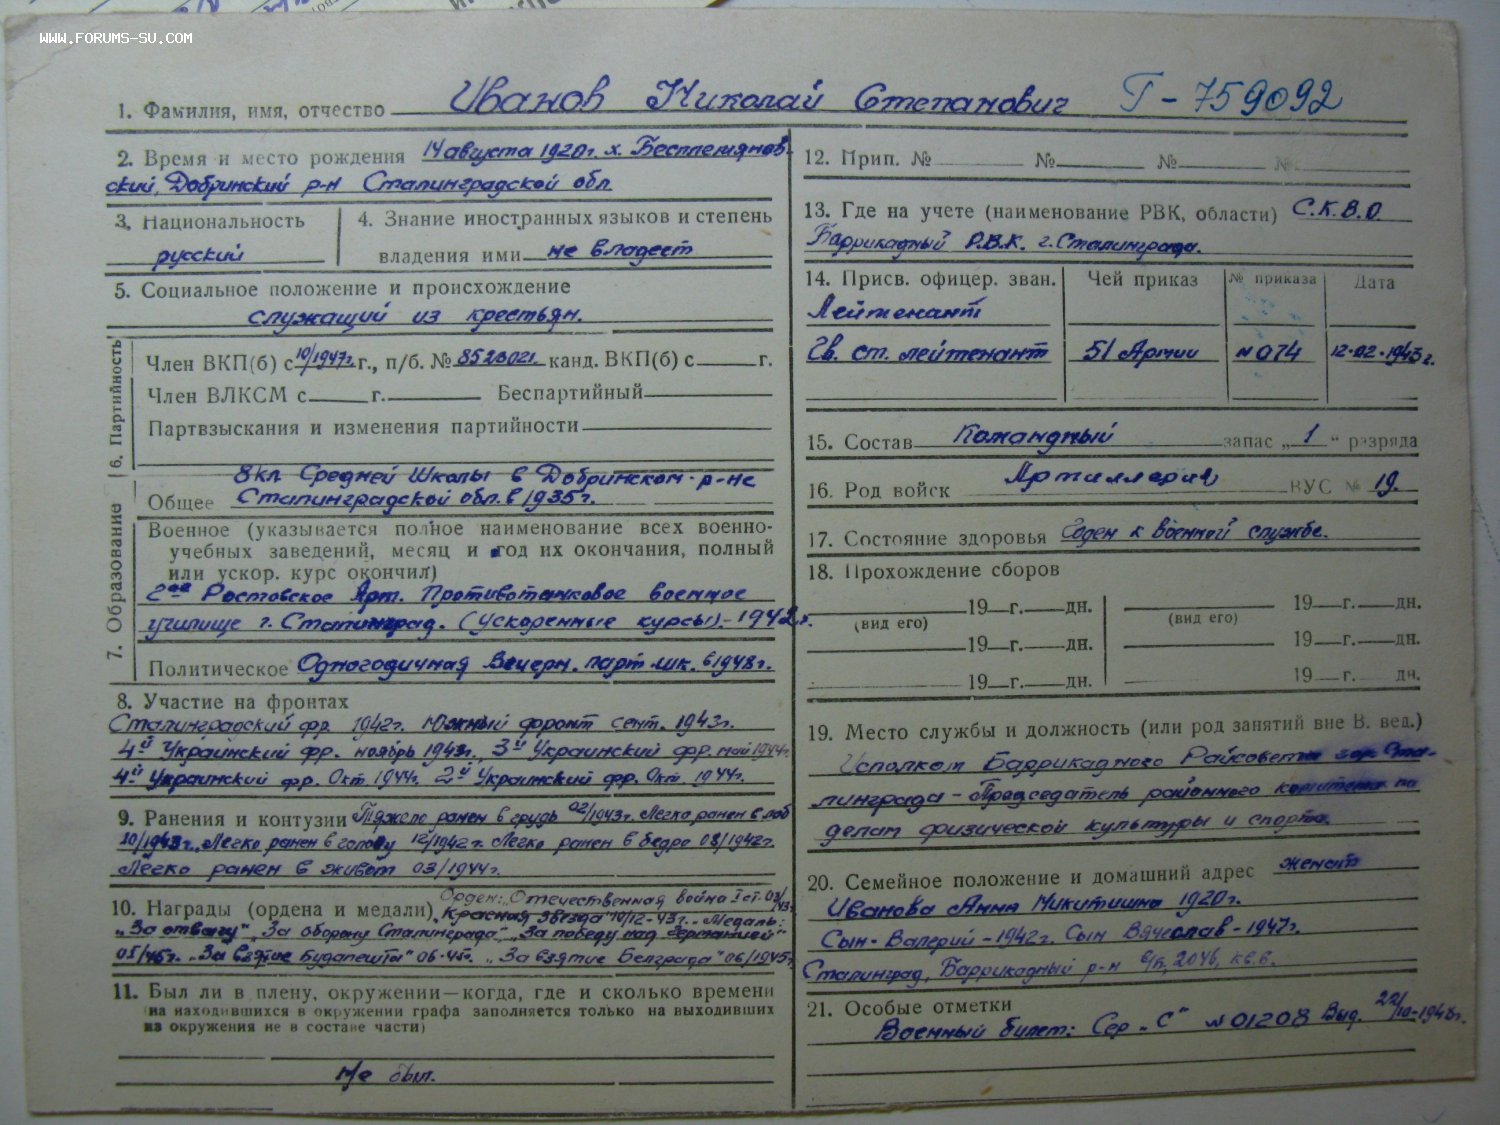 WWW.FORUMS-SU.COM
1. Фамилия, имя, отчество Иванов Николай Степанович Г-759092
2. Время и место рождения 14 августа 1920г. х. Бесплемянов-
ский, Добринский р-н Сталинградской обл.
3. Национальность
русский
4. Знание иностранных языков и степень
владения ими не владеет
5. Социальное положение и происхождение
служащий из крестьян.
6. Партийность
Член ВКП(б) с 10/1947г. г., п/б. № 8528021 канд. ВКП(б) с г.
Член ВЛКСМ с г. Беспартийный
Партвзыскания и изменения партийности
7. Образование
8кл Средней Школы в Добринском р-не
Общее Сталинградской обл. в 1935г.
Военное (указывается полное наименование всех военно-
учебных заведений, месяц и год их окончания, полный
или ускор. курс окончил)
2ое Ростовское Арт. Противотанковое военное
училище г. Сталинград. (Ускоренные курсы).- 1942г.
Политическое Одногодичная Вечерн. парт. шк. в 1948г.
8. Участие на фронтах
Сталинградский фр. 1942г. Южный фронт сент. 1943г.
4й Украинский фр. ноябрь 1943г., 3й Украинский фр. май 1944г.
4й Украинский фр. Окт. 1944г. 2й Украинский фр. Окт. 1944г.
9. Ранения и контузии Тяжело ранен в грудь 02/1943г. Легко ранен в лоб
10/1943г. Легко ранен в голову 12/1942г. Легко ранен в бедро 08/1942г.
Легко ранен в живот 03/1944г.
Орден: "Отечественная война I ст.
10. Награды (ордена и медали) Красная звезда" 10/12-43г. Медаль:
"За отвагу" "За оборону Сталинграда", "За победу над Германией"
05/45г. "За взятие Будапешта" 06-45г. "За взятие Белграда" 06/1945г.
11. Был ли в плену, окружении—когда, где и сколько времени
(на находившихся в окружении графа заполняется только на выходивших
из окружения не в составе части)
Не был.
12. Прип. № № № №
13. Где на учете (наименование РВК, области) С.К.В.О.
Баррикадный Р.В.К. г. Сталинграда.
14. Присв. офицер. зван. Чей приказ № приказа Дата
Лейтенант
Гв. ст. лейтенант 51 Армии №074 12-02-1943г.
15. Состав Командный запас „1“ разряда
16. Род войск Артиллерия ВУС № 19.
17. Состояние здоровья Годен к военной службе.
18. Прохождение сборов
19 г. дн. 19 г. дн.
(вид его) (вид его)
19 г. дн. 19 г. дн.
19 г. дн. 19 г. дн.
19. Место службы и должность (или род занятий вне В. вед.)
Исполком Баррикадного Райсовета гор. Ста-
линграда - Председатель районного комитета по
делам физической культуры и спорта.
20. Семейное положение и домашний адрес женат
Иванова Анна Никитишна 1920г.
Сын- Валерий - 1942г. Сын Вячеслав - 1947г.
Сталинград, Баррикадный р-н
21. Особые отметки
Военный билет: Сер "С" №01208 Выд. 22/10-1948г.